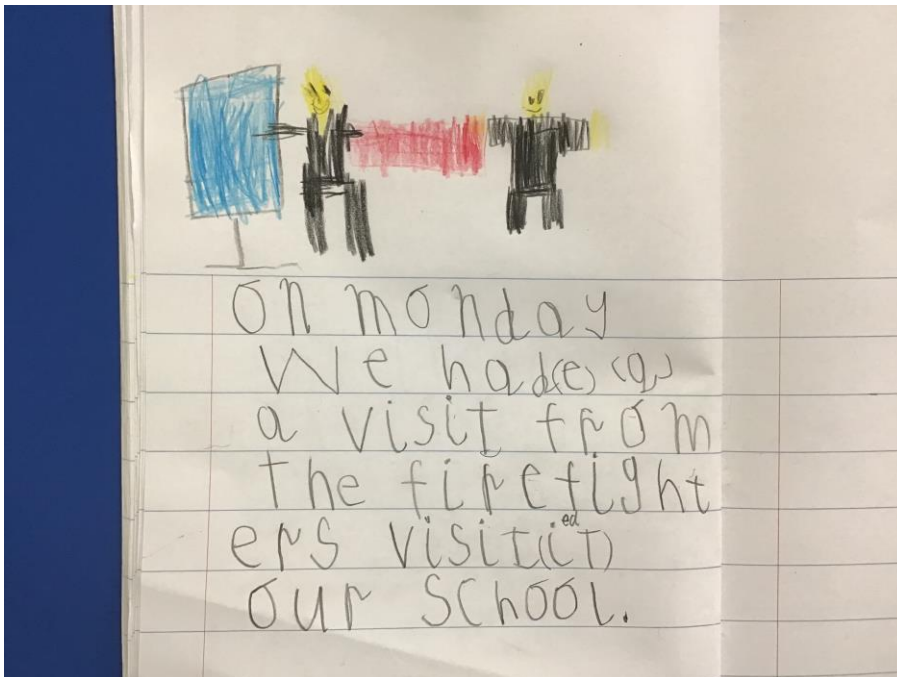 on monday
We had(e) (a)
a visit from
the firefight
ers visit(it) ed
our school.